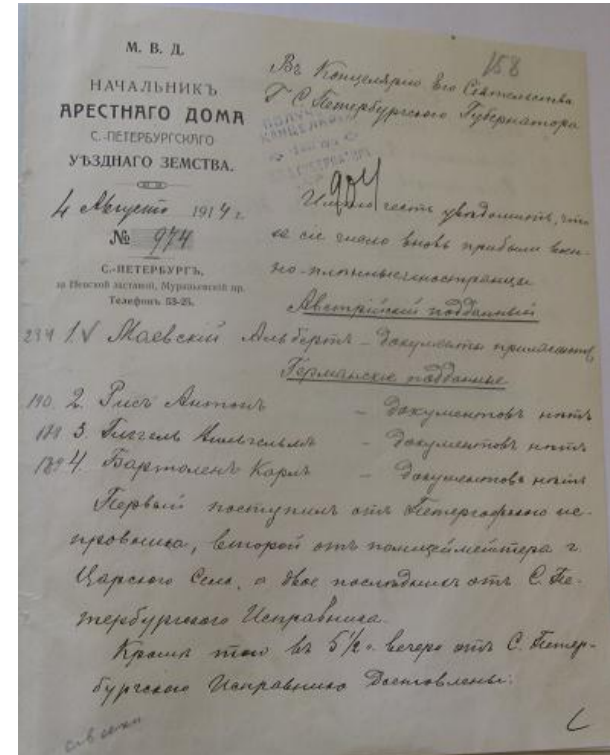 М. В. Д.
НАЧАЛЬНИКЪ
АРЕСТНАГО ДОМА
С.-ПЕТЕРБУРГСКАГО
УѢЗДНАГО ЗЕМСТВА.
4 Августа 1914 г.
№ 974
С.-ПЕТЕРБУРГЪ,
за Невской заставой, Мурзинскій пр.
Телефонъ 53-25.
158
Въ Канцелярію Его Сіятельства
Г С. Петербургскаго Губернатора
904
Имѣю честь увѣдомить, что
за сіе число вновь прибыли воен-
но-плѣнные иностранцы
Австрійскій подданный
234 1. V Маевскій Альбертъ – документы прилагаются
Германскіе подданные
190. 2. Рисъ Антонъ – документовъ нѣтъ
188 3. Гиггель Вильгельмъ – документовъ нѣтъ
189 4. Бартоленъ Карлъ – документовъ нѣтъ
Первый поступилъ отъ Петергофскаго ис-
правника, второй отъ полицеймейстера г.
Царскаго Села, а двое послѣднихъ отъ С. Пе-
тербургскаго Исправника.
Кромѣ того въ 5½ ч. вечера отъ С. Петер-
бургскаго Исправника доставлены: